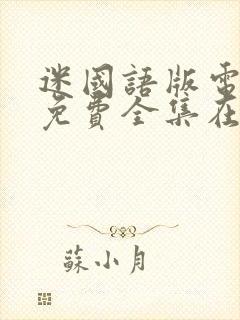 迷國語版電
免費全集在
蘇小月